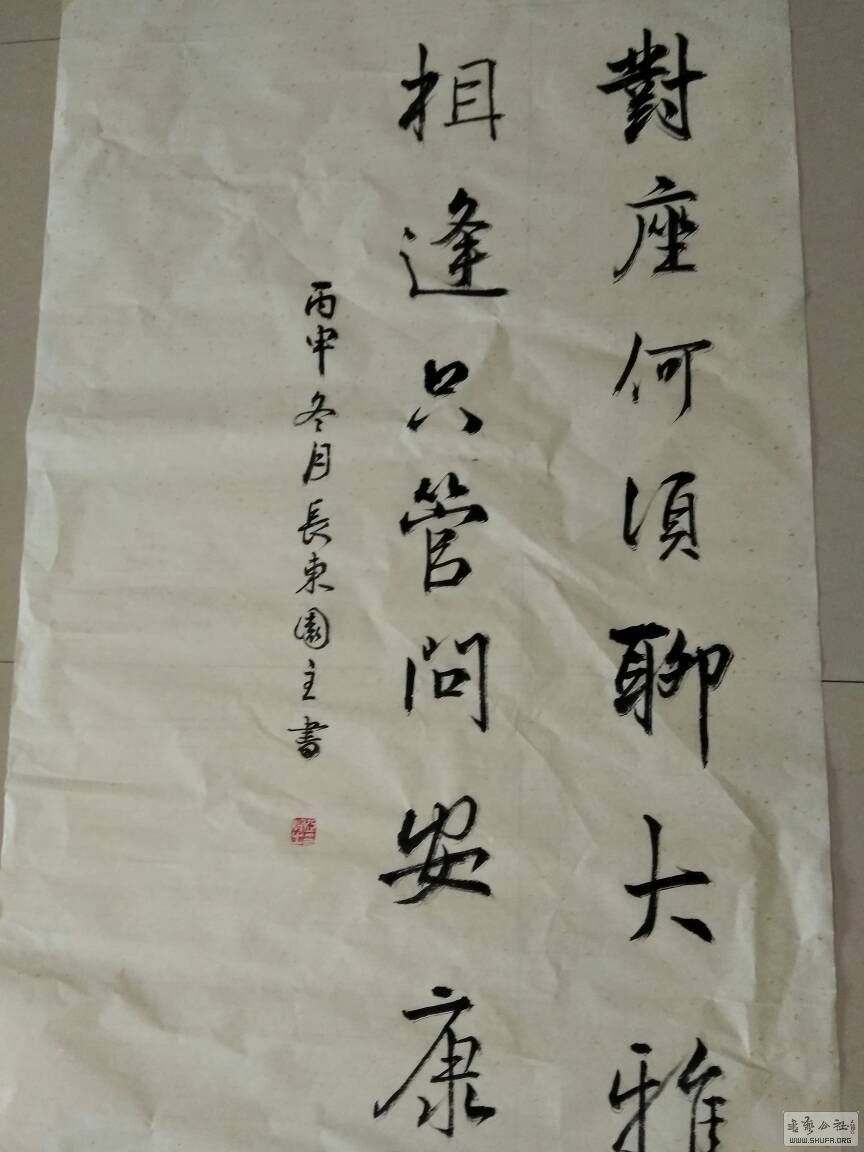 對座何須聊大雅
相逢只管問安康
丙申冬月長東園主書
WWW.SHUFA.ORG